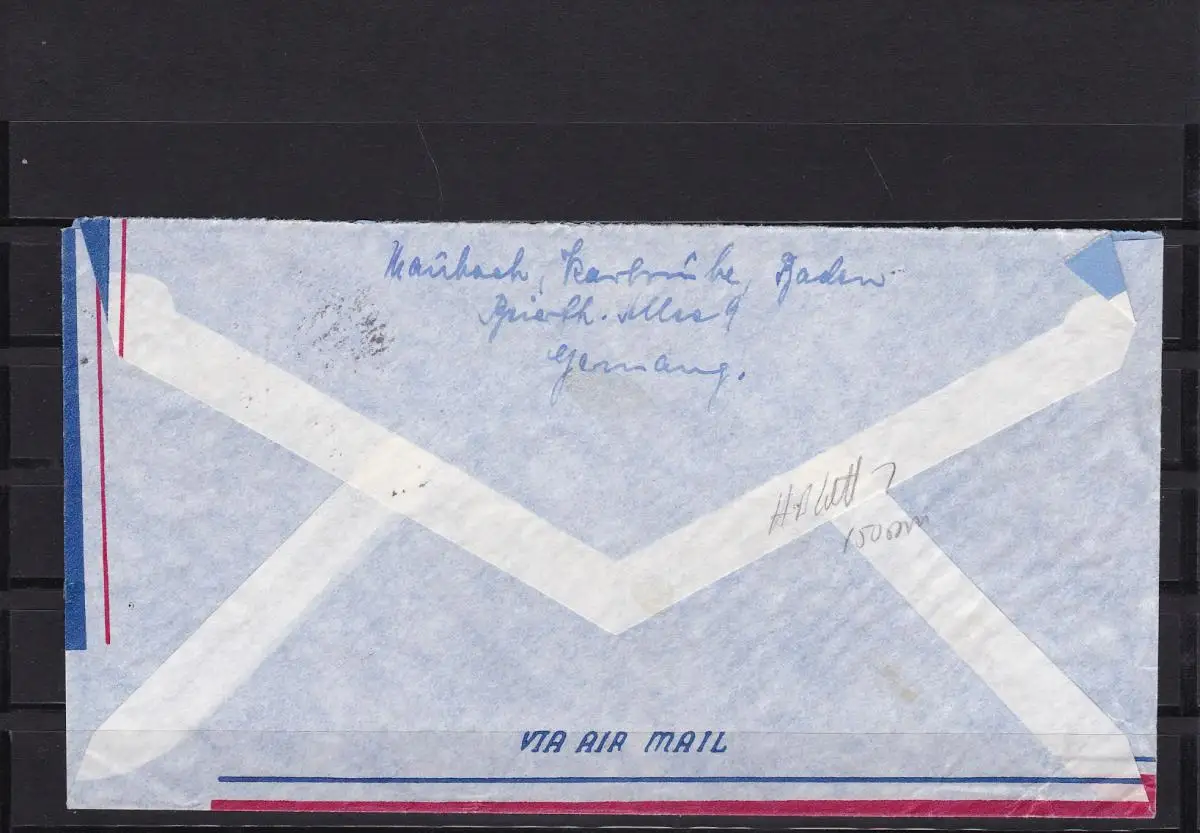 Maübach, Karlsrühe, Baden
Beierth. Allee 9
Germany.
1500
VIA AIR MAIL